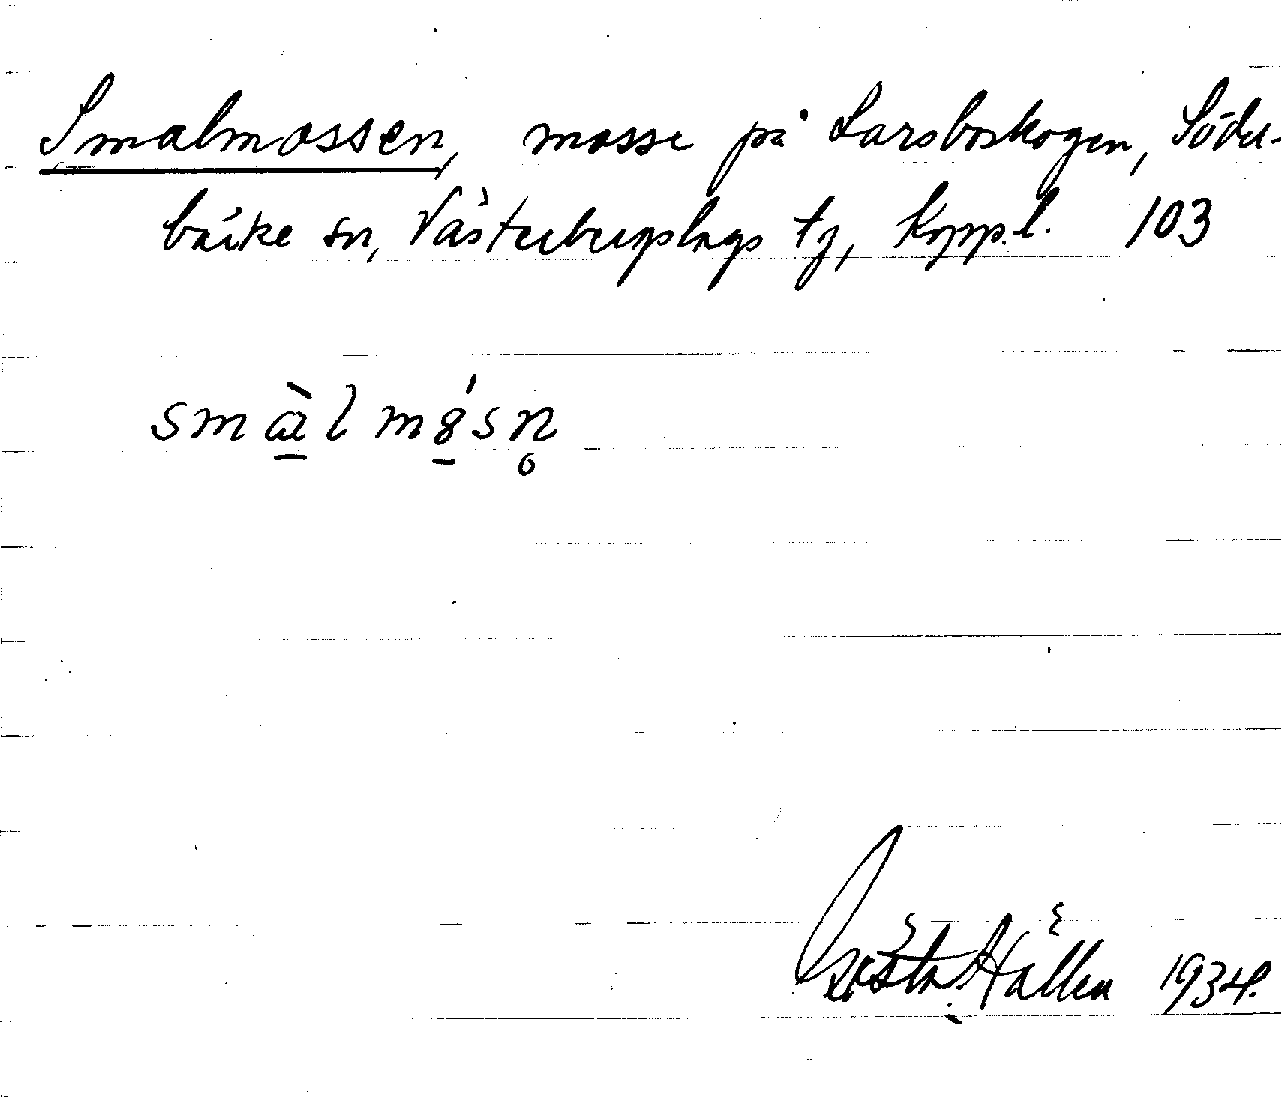 Smalmossen, mosse på Larsboskogen, Söder-
bärke sn, Västerbergslags tg, Kopp.l. 103
smàlmósn̥
Gösta Hällen 1934.